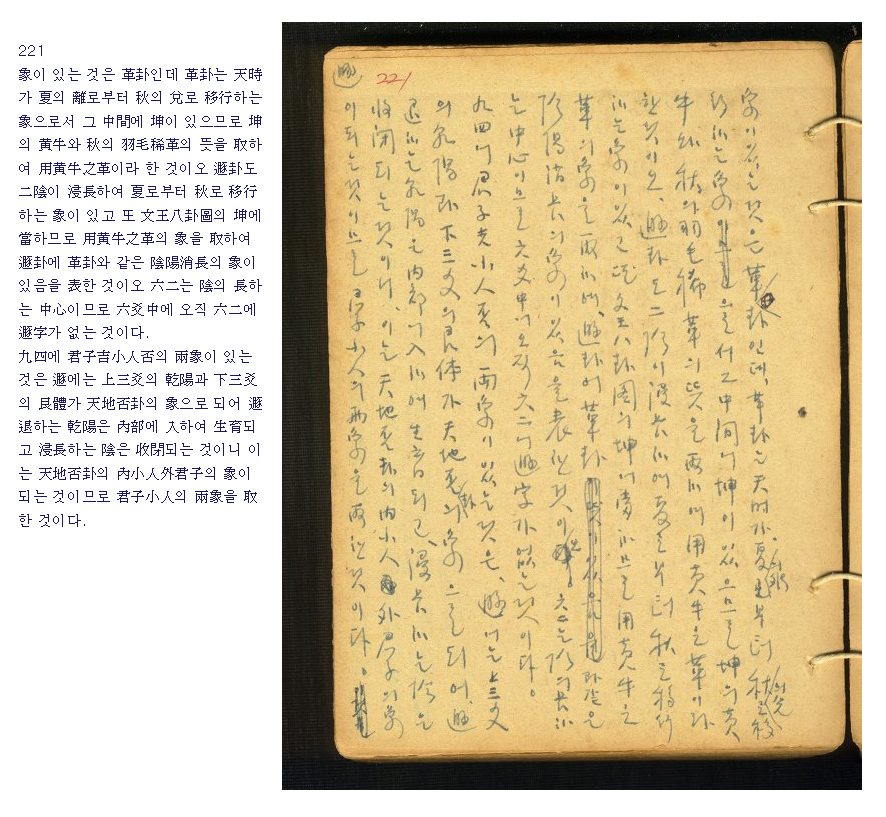 221
象이 있는 것은 革卦인데 革卦는 天時
가 夏의 離로부터 秋의 兌로 移行하는
象으로서 그 中間에 坤이 있으므로 坤
의 黄牛와 秋의 羽毛稀革의 뜻을 取하
여 用黄牛之革이라 한 것이오 遯卦도
二陰이 浸長하여 夏로부터 秋로 移行
하는 象이 있고 또 文王八卦圖의 坤에
當하므로 用黄牛之革의 象을 取하여
遯卦에 革卦와 같은 陰陽消長의 象이
있음을 表한 것이오 六二는 陰의 長하
는 中心이므로 六爻中에 오직 六二에
遯字가 없는 것이다.
九四에 君子吉小人否의 兩象이 있는
것은 遯에는 上三爻의 乾陽과 下三爻
의 艮體가 天地否卦의 象으로 되어 遯
退하는 乾陽은 內部에 入하여 生育되
고 浸長하는 陰은 收閉되는 것이니 이
는 天地否卦의 內小人外君子의 象이
되는 것이므로 君子小人의 兩象을 取
한 것이다.
遯
221
象이 있는 것은 革卦인데, 革卦는 天时가 夏의 離로부터 秋의 兌로 移
行하는 象으로서 그 中间에 坤이 있으므로 坤의 黄
牛와 秋의 羽毛稀革의 뜻을 取하여 用黄牛之革이라
한 것이오, 遯卦도 二陰이 浸長하여 夏로부터 秋로 移行
하는 象이 있고 또 文王八卦圖의 坤에 當하므로 用黄牛之
革의 象을 取하여, 遯卦에 革卦와 같은
陰陽消長의 象이 있음을 表한 것이오 六二는 陰의 長하
는 中心이므로 六爻中에 오직 六二에 遯字가 없는 것이다。
九四에 君子吉小人否의 兩象이 있는 것은, 遯에는 上三爻
의 乾陽과 下三爻의 艮体가 天地否卦의 象으로 되어, 遯
退하는 乾陽은 內部에 入하여 生育되고, 浸長하는 陰은
收閉되는 것이니, 이는 天地否卦의 內小人 外君子의 象
이 되는 것이므로 君子小人의 兩象을 取한 것이다。